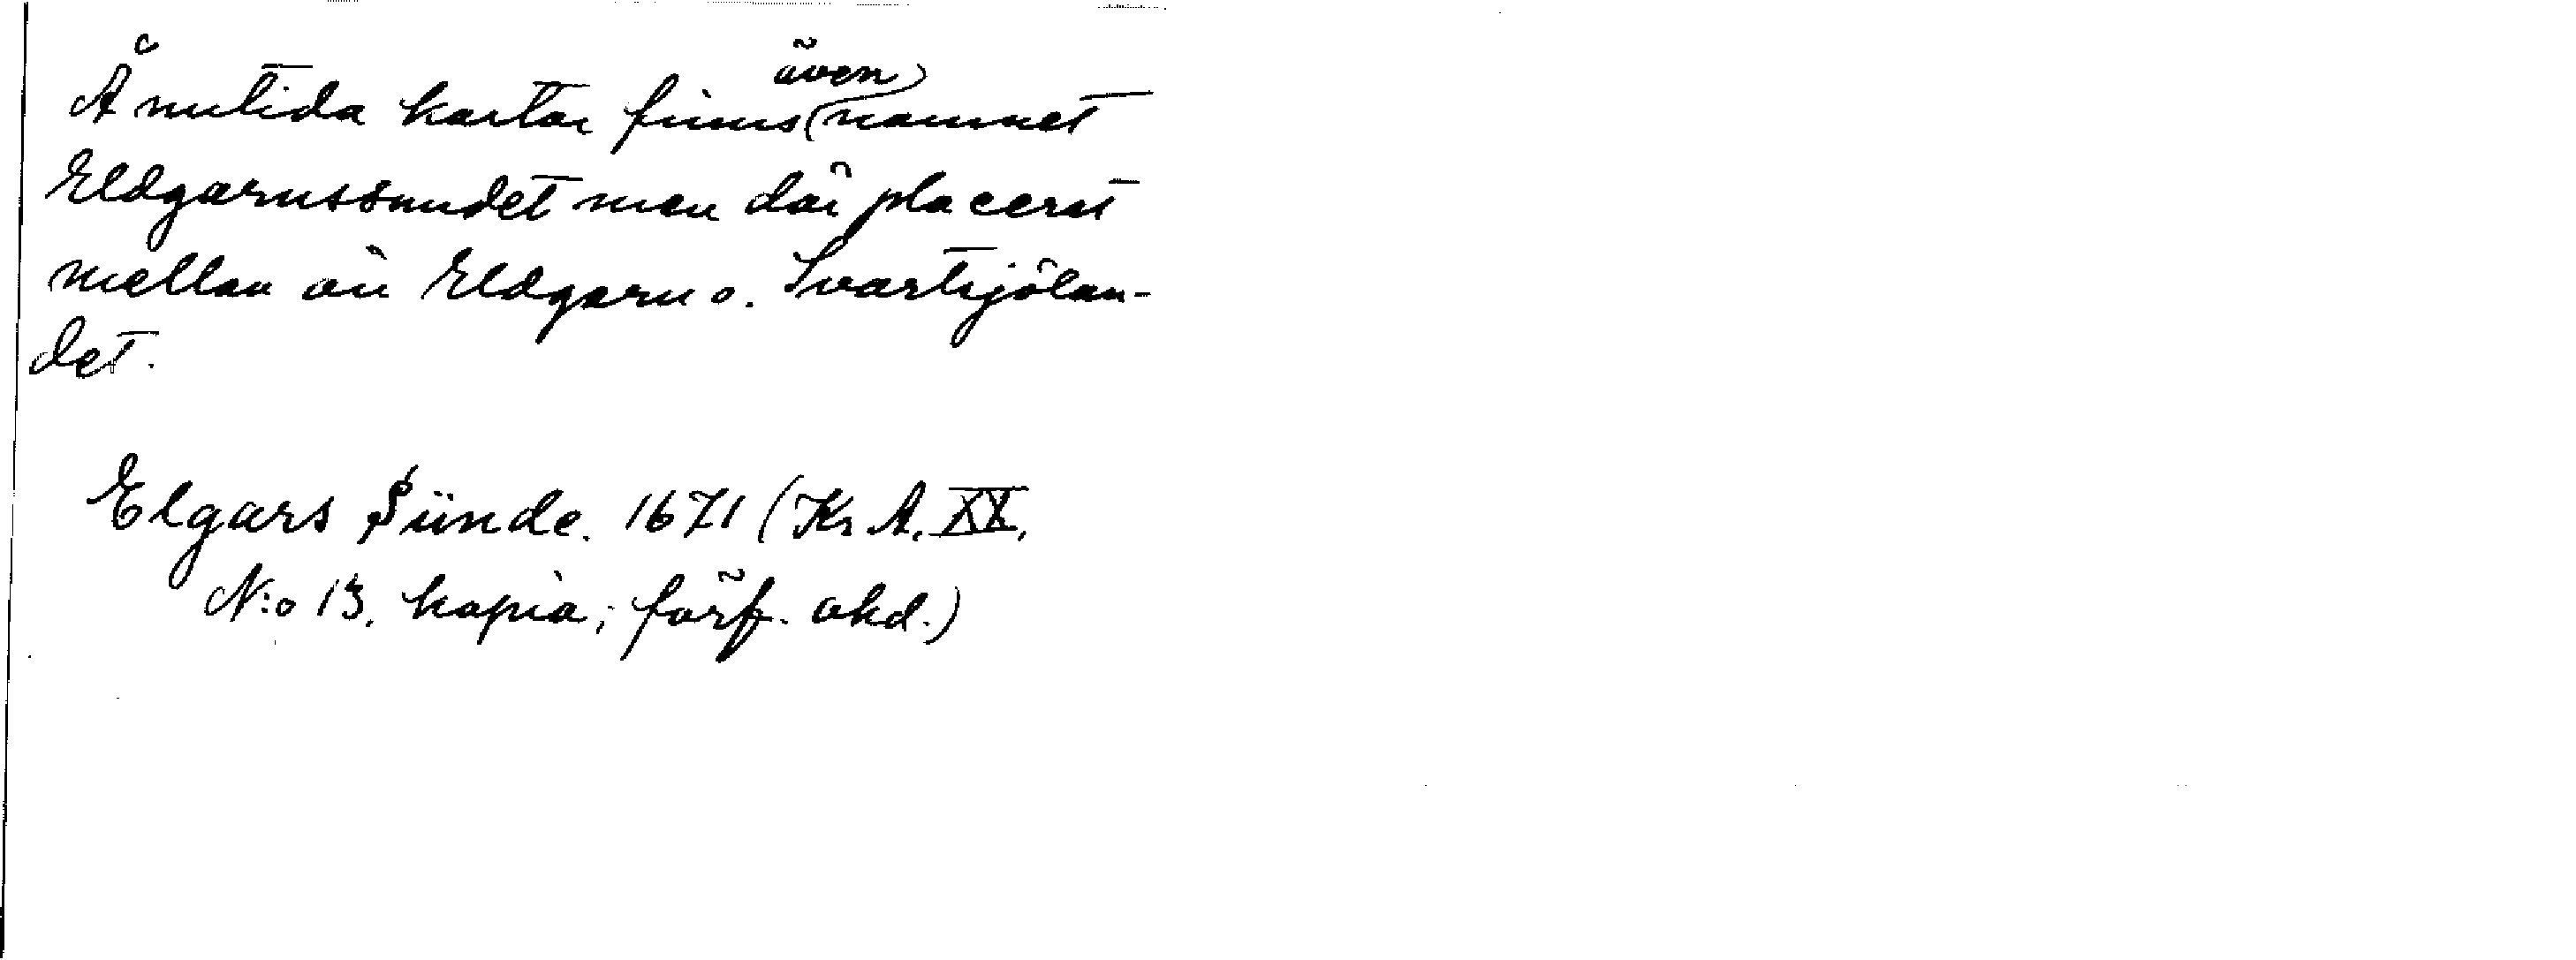 Å nutida kartor finns även namnet
Eldgarnssundet men där placerat
mellan ön Eldgarn o. Svartsjölan-
det.
Elgars Sünde. 1671 (Kr A. XX,
N:o 13. kopia; förf. okd.)